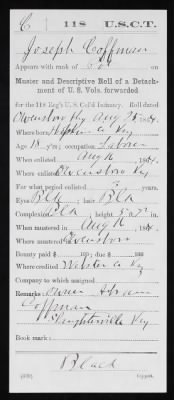 C 118 U.S.C.T.
Joseph Coffman
Appears with rank of
Muster and Descriptive Roll of a Detach-
ment of U. S. Vols. forwarded
for the 118 Reg't U. S. Col'd Infantry. Roll dated
Owensboro Ky Aug 1864.
Where born Ky
Age 18 y'rs; occupation Laborer
When enlisted Aug 16, 1864.
Where enlisted Owensboro Ky
For what period enlisted 3 years.
Eyes Blk; hair Blk
Complexion Blk; height 5 ft. in.
When mustered in Aug 16, 1864.
Where mustered in Owensboro
Bounty paid $ 100; due $ 100
Where credited Webster Co Ky
Company to which assigned
Remarks: Owner Abram
Coffman
Slaughterville Ky
Book mark:
Black
Copyist.